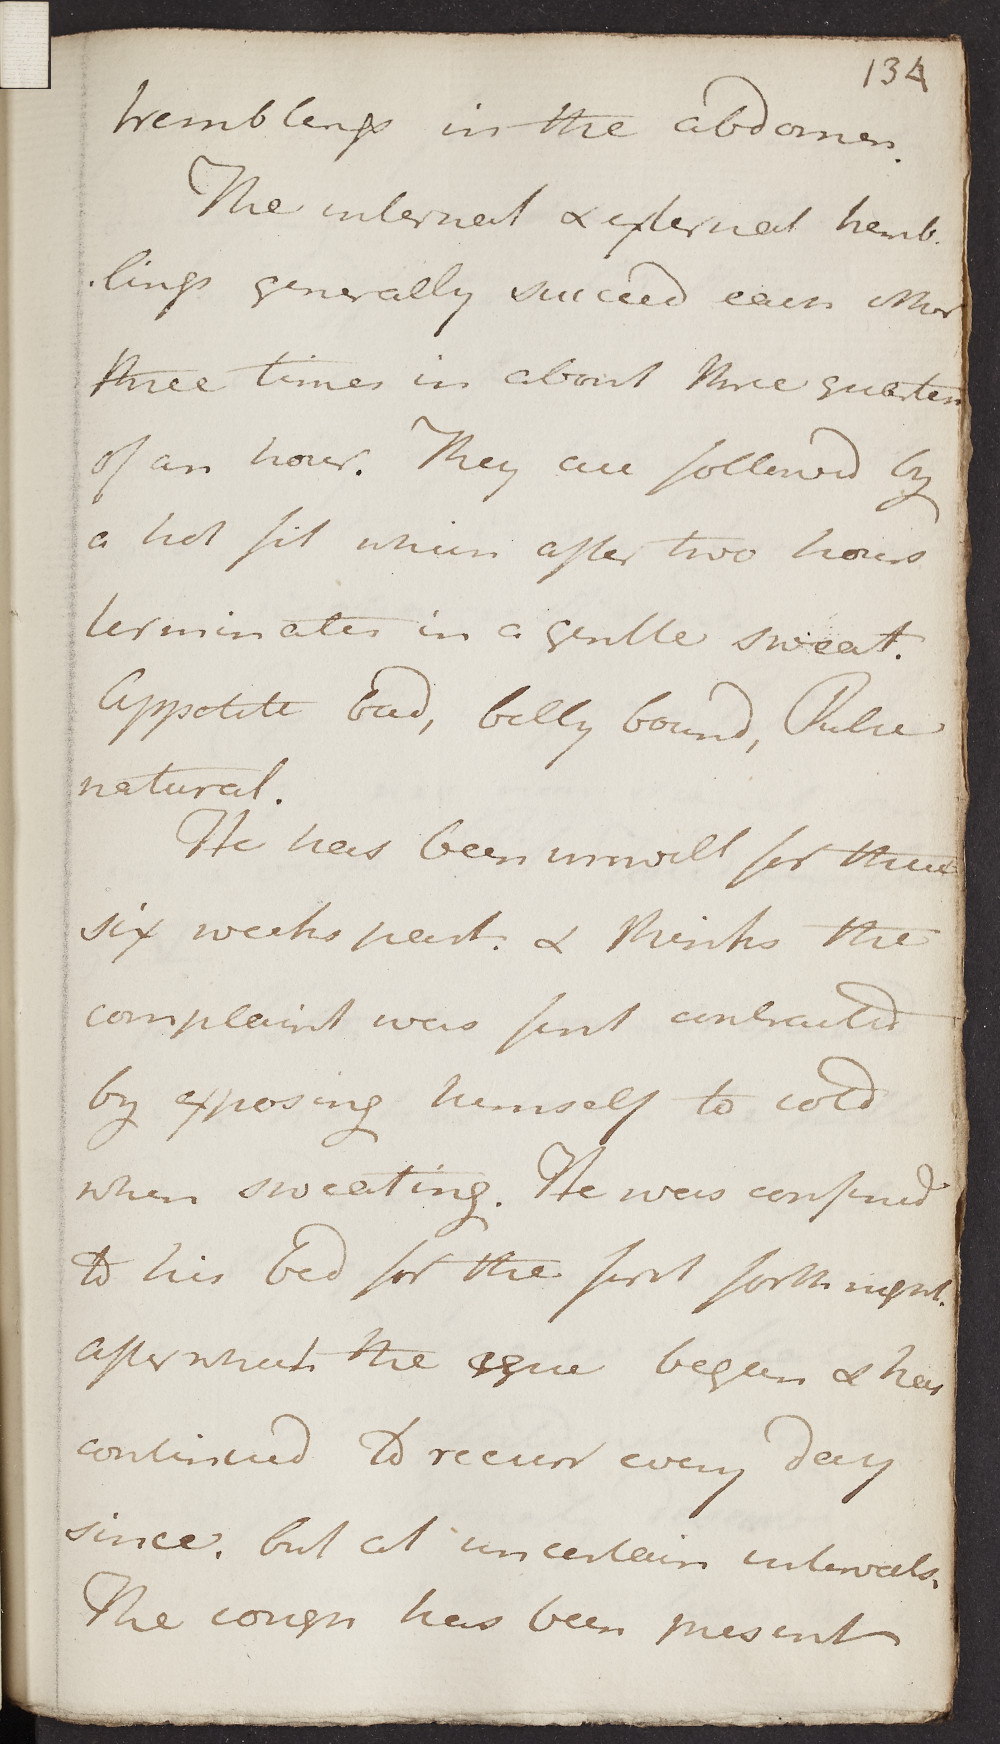 134
tremblings in the abdomen.
The internal & external tremb-
-lings generally succeed each other
three times in about three quarters
of an hour. They are followed by
a hot fit which after two hours
terminates in a gentle sweat.
Appetite bad, belly bound, Pulse
natural.
He has been unwell for these
six weeks past. & thinks the
complaint was first contracted
by exposing himself to cold
when sweating. He was confined
to his bed for the first forthnight.
after which the ague began & has
continued to recurr every day
since, but at uncertain intervals.
The cough has been present